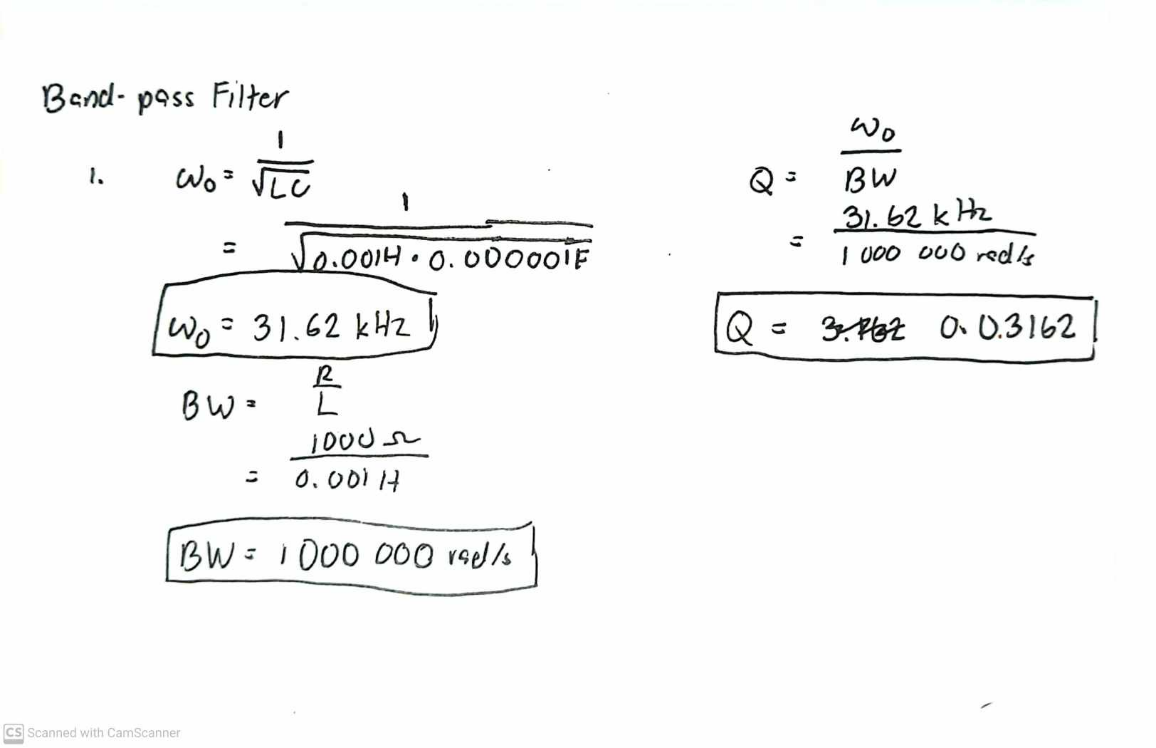 Band-pass Filter
1. ω₀ = 1/√LC
= 1/√0.001H · 0.000001F
ω₀ = 31.62 kHz
BW = R/L
= 1000 Ω/0.001 H
BW = 1 000 000 rad/s
Q = ω₀/BW
= 31.62 kHz/1 000 000 rad/s
Q = 0.0.3162
CS Scanned with CamScanner